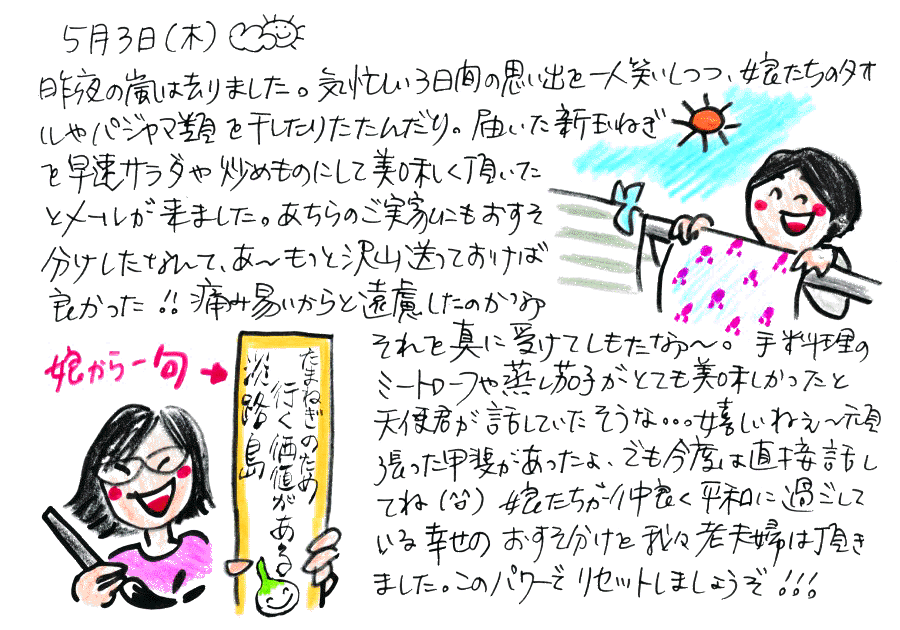 5月3日(木)
昨夜の嵐は去りました。気忙しい3日間の思い出を一人笑いしつつ、娘たちのタオ
ルやパジャマ類を干したりたたんだり。届いた新玉ねぎ
を早速サラダや炒めものにして美味しく頂いた
とメールが来ました。あちらのご実家にもおすそ
分けしたなんて、あ〜もっと沢山送っておけば
良かった!!痛み易いからと遠慮したのかつ
それを真に受けてしもたなわ〜。手料理の
ミートローフや蒸し茄子がとても美味しかったと
天使君が話していたそうな・・・嬉しいねぇ〜頑
張った甲斐があったよ、でも今度は直接話し
てね(^^) 娘たちが仲良く平和に過ごして
いる幸せのおすそ分けを我々老夫婦は頂き
ました。このパワーでリセットしましょうぞ!!!
娘から一句→
たまねぎのため
行く価値がある
淡路島